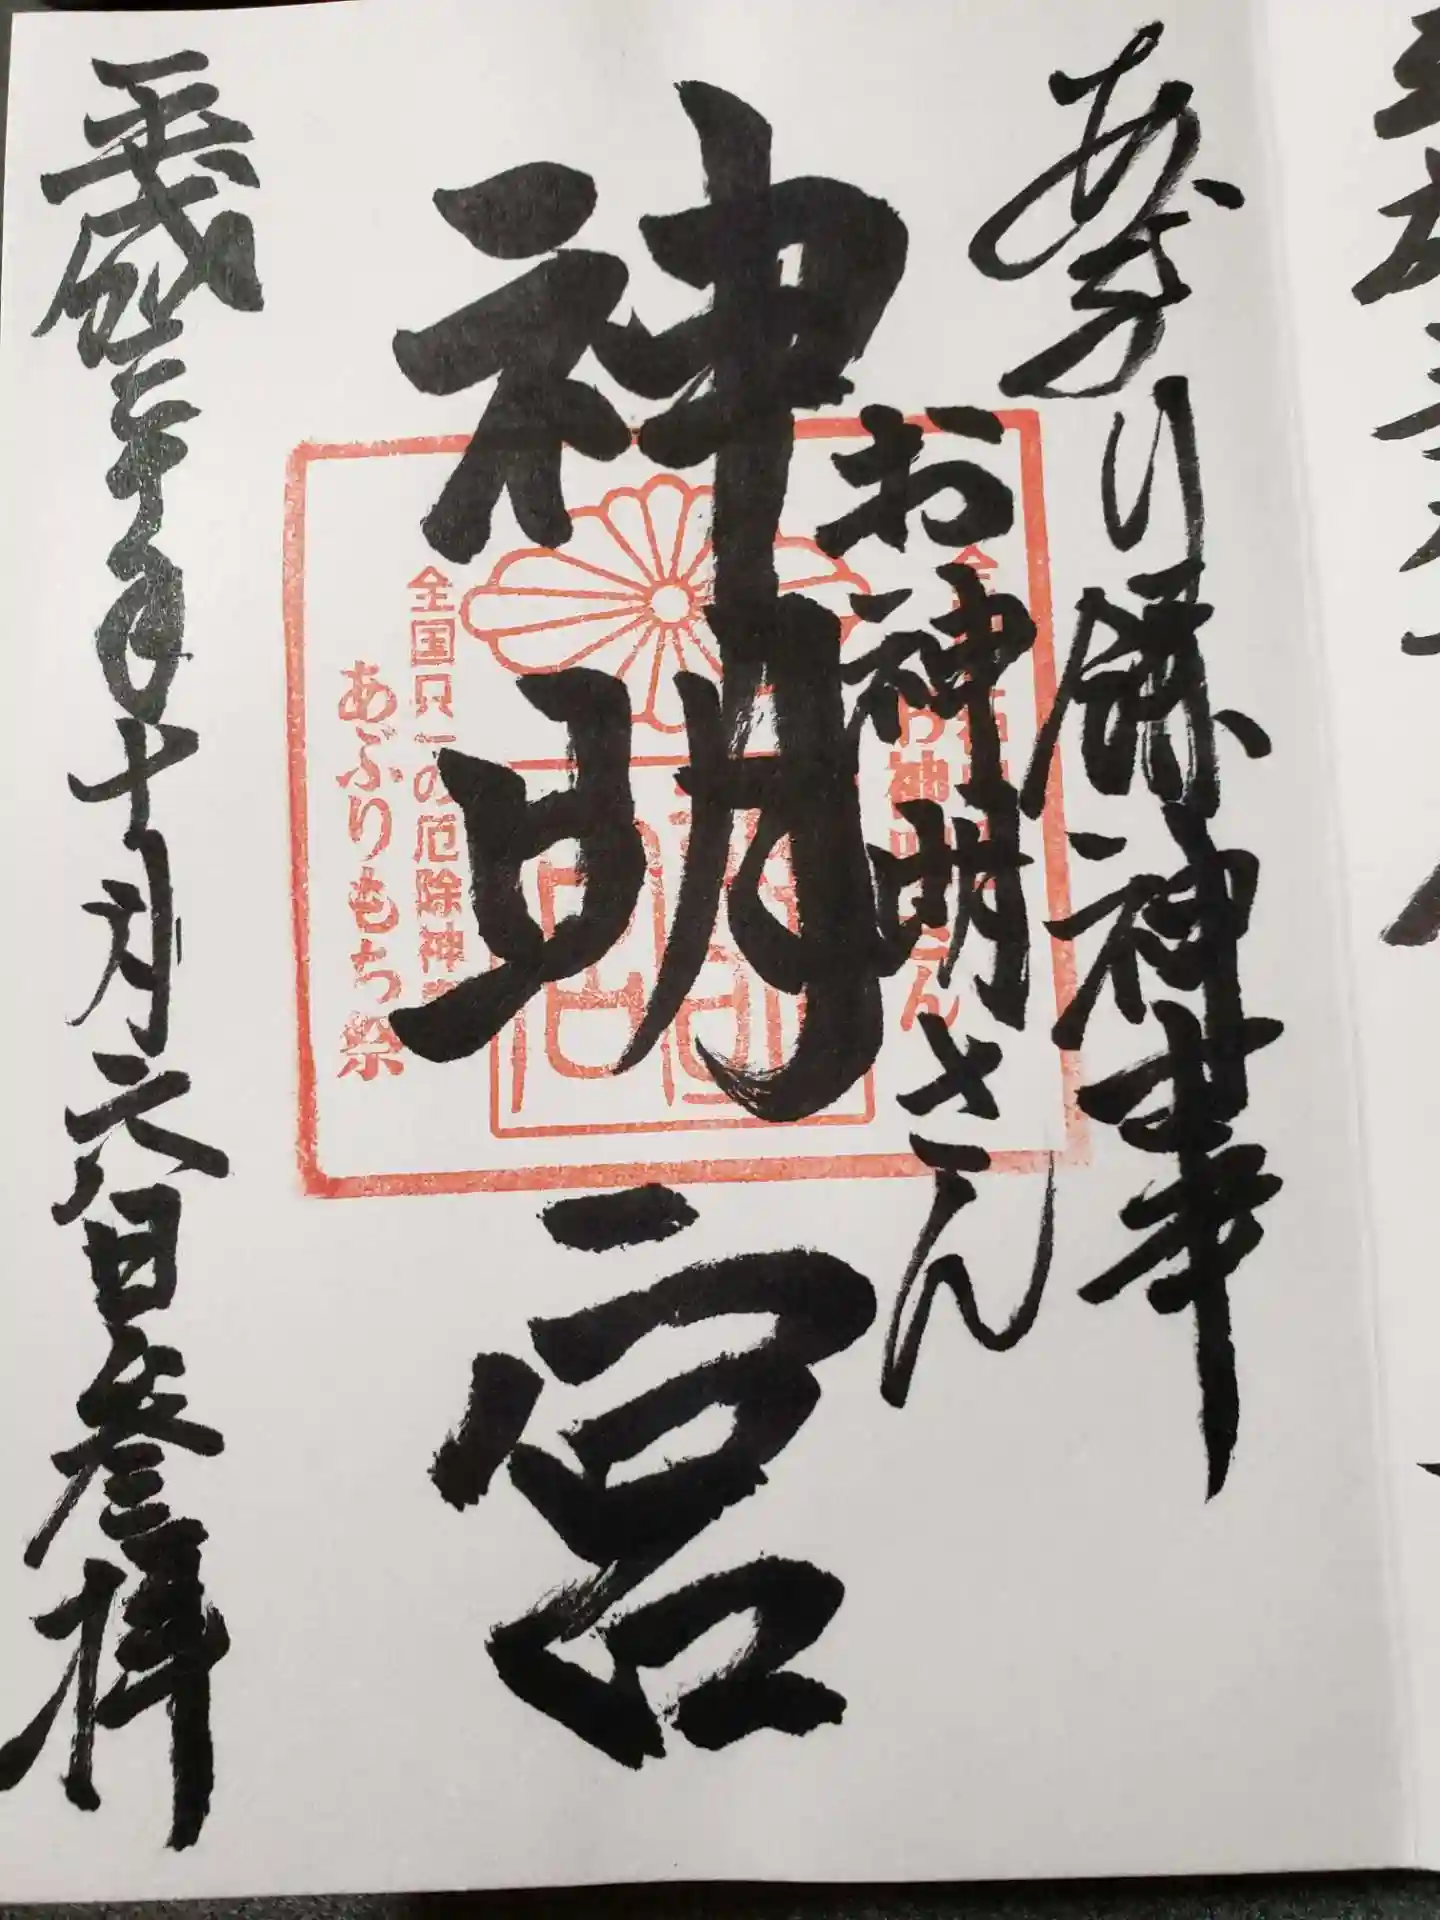 あぶり餅神事
お神明さん
神明宮
全国只一の厄除神事
あぶりもち祭
平成参十年十月六日参拝